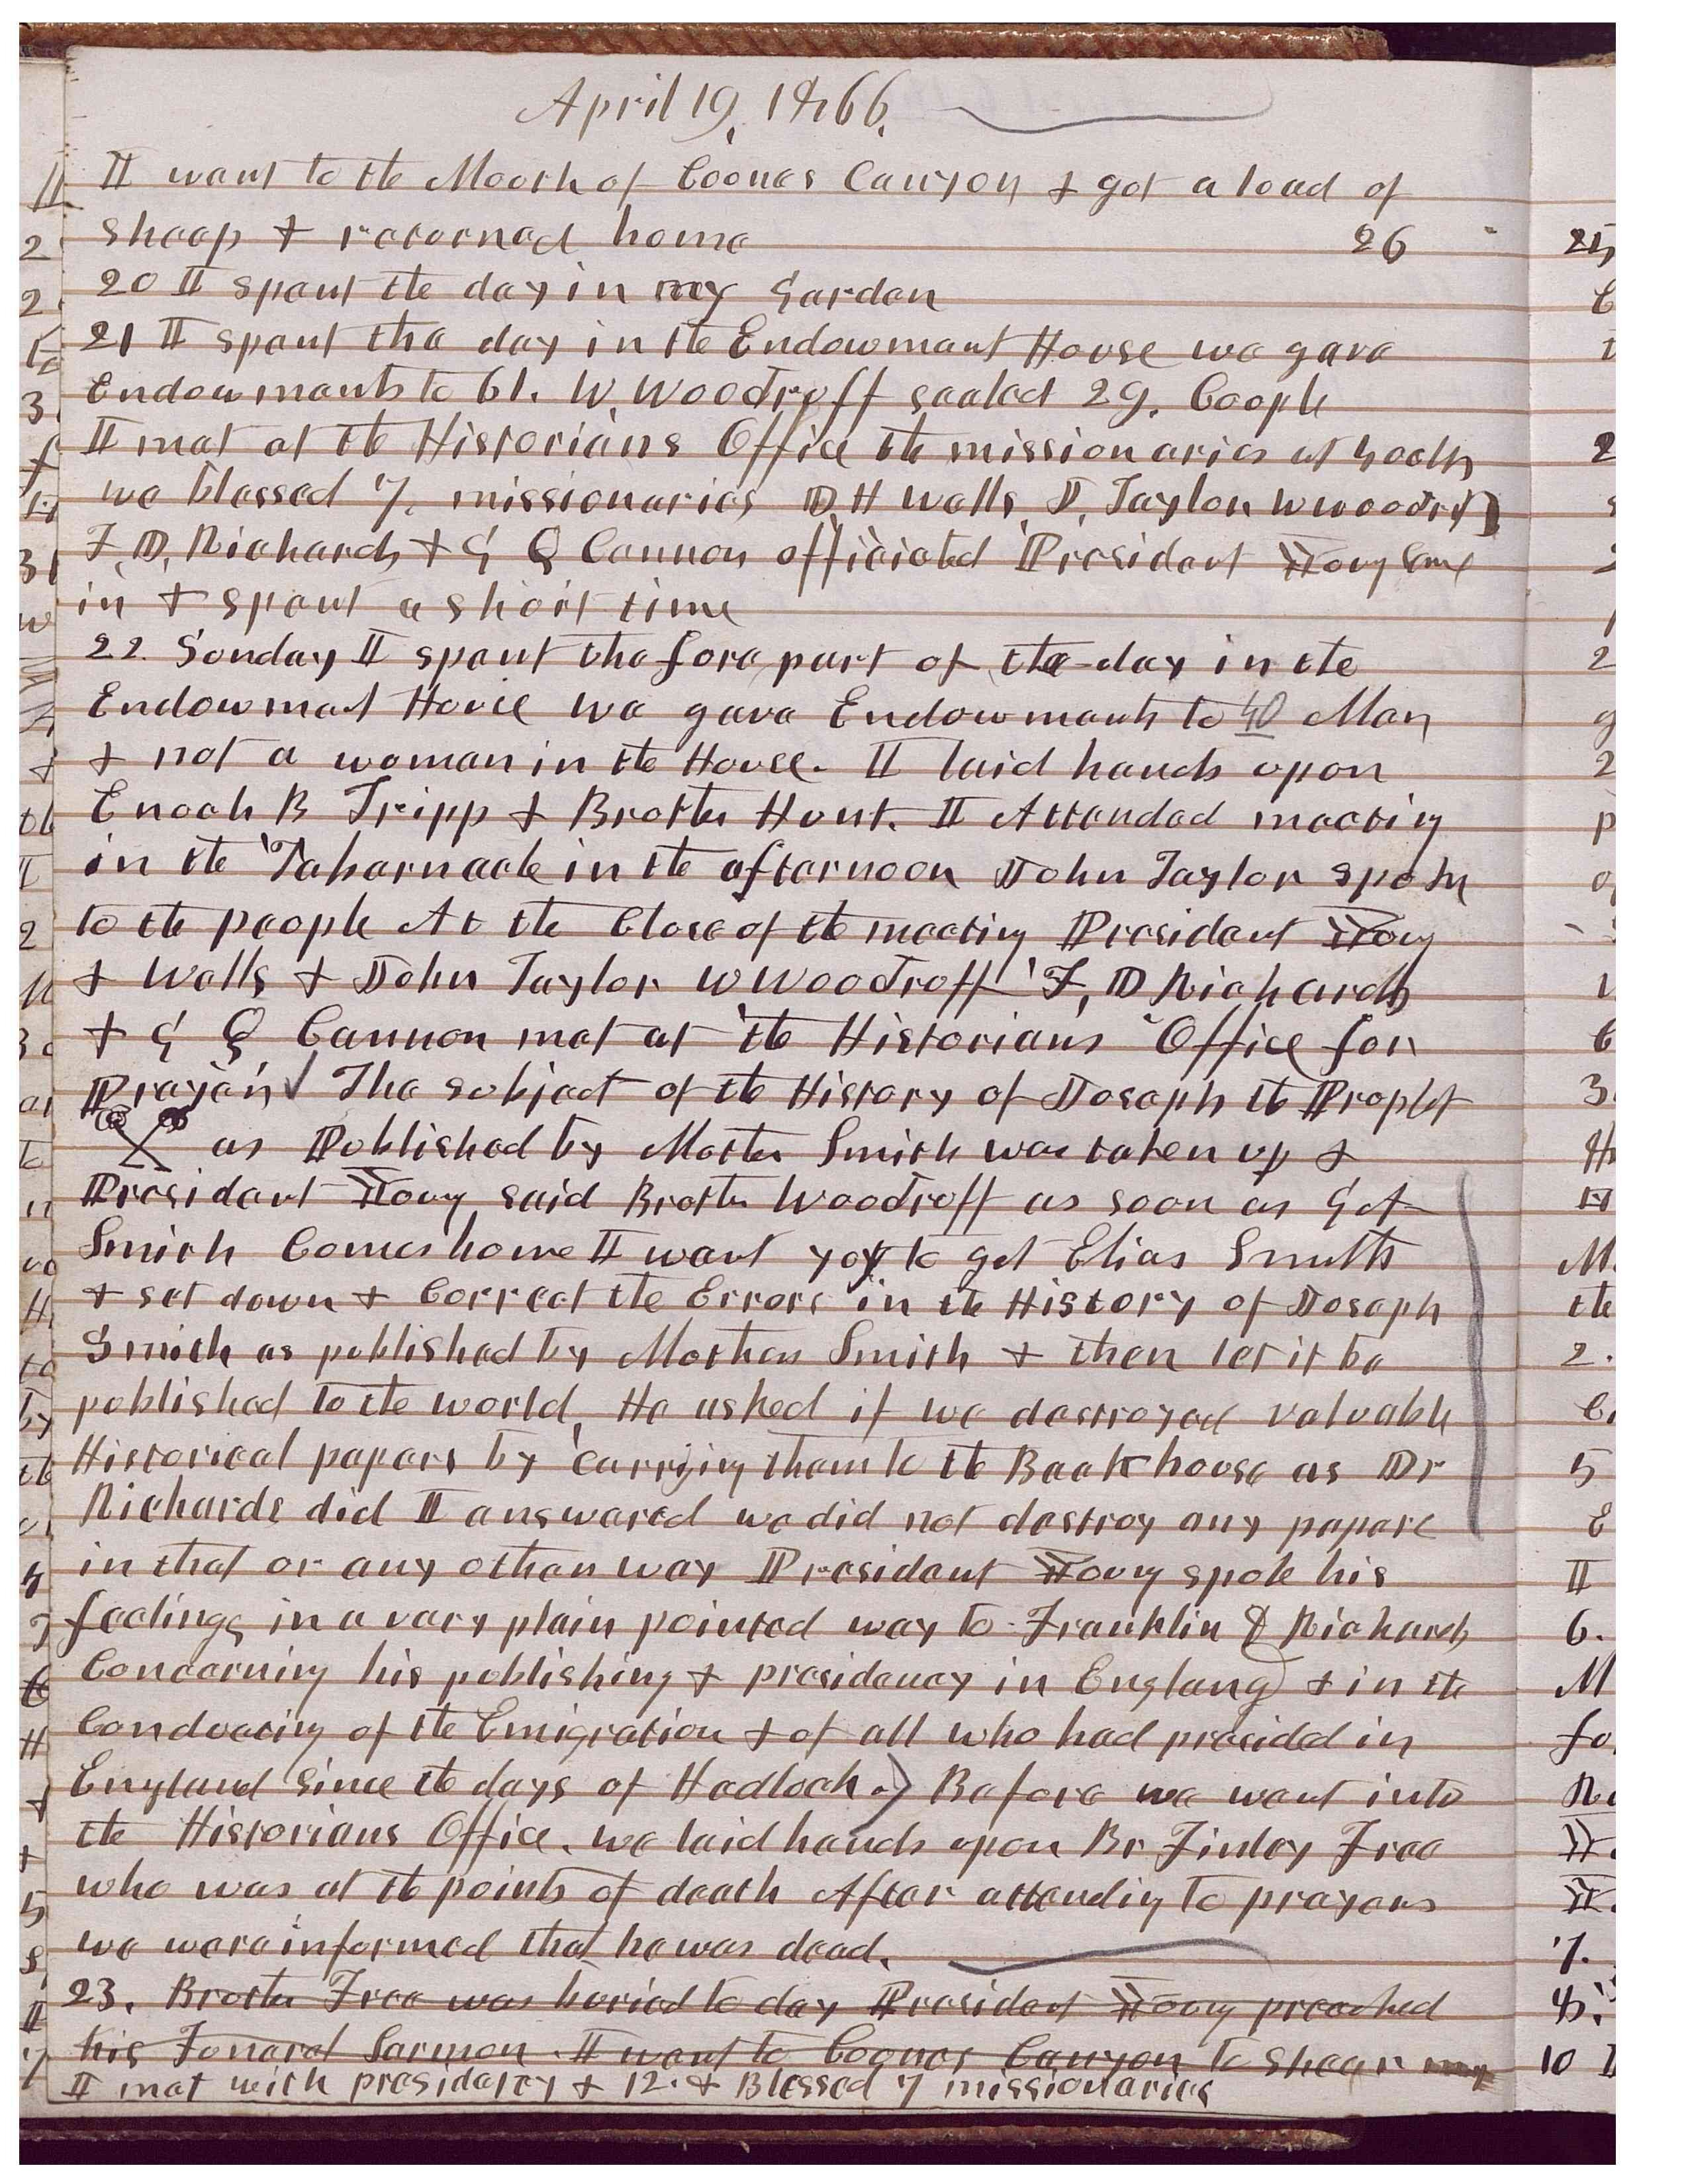 April 19, 1866.
I went to the Mouth of Coones Canyon & got a load of
sheep & returned home 26
20 I spent the day in my Garden
21 I spent the day in the Endowment House we gave
Endowments to 61. W. Woodruff sealed 29. Couple
I met at the Historians Office the missionaries at 4 oclk
we blessed 7, missionaries D H Wells J, Taylor W Woodruff
F, D, Richards & G Q Cannon officiated President Young Came
in & spent a short time
22. Sunday I spent the fore part of the day in the
Endowmet House we gave Endowments to 40 Men
& not a woman in the House. I laid hands upon
Enoch B Tripp & Brother Hunt. I Attended meeting
in the Tabernacle in the afternoon John Taylor spoke
to the people At the Close of the meeting President Young
& Wells & John Taylor W Woodruff F, D Richards
& G Q Cannon met at the Historians Office for
Prayer, The subject of the History of Joseph the Prophet
as Published by Mother Smith was taken up &
President Young said Brother Woodruff as soon as G A
Smith Comes home I want you to get Elias Smith
& set down & Correct the Errors in the History of Joseph
Smith as published by Mother Smith & then let it be
published to the world, He asked if we destroyed valuable
Historical papers by carrying them to the Back house as Dr
Richards did I answered we did not destroy any papers
in that or any other way President Young spoke his
feelings in a very plain pointed way to Franklin D Richards
Concerning his publishing & presidency in England & in the
Conducting of the Emigration & of all who had presided in
England since the days of Hedlock.) Before we went into
the Historians Office. we laid hands upon Br Finley Free
who was at the points of death After attending to prayers
we were informed that he was dead.
23. Brother Free was buried to day President Young preached
his Funeral Sermon. I went to Coones Canyon to shear my
I met with presidency & 12. & Blessed 7 missionaries